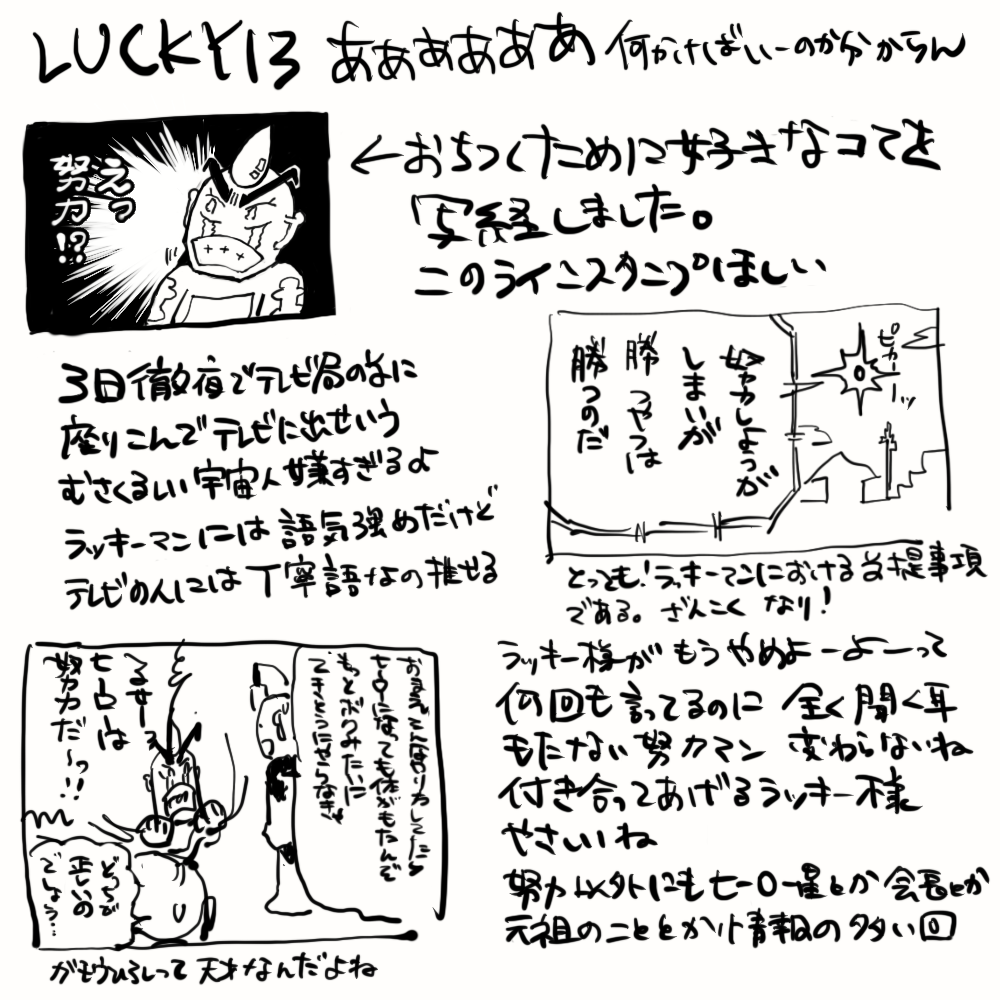 LUCKY13 ああぁぁああ 何かけばいーのか分からん
えっ
努力!?
←おちつくために好きなコマを
写経しました。
このラインスタンプほしい
3日徹夜でテレビ局の前に
座りこんでテレビに出せいう
むさくるしい宇宙人嫌すぎるよ
ラッキーマンには語気強めだけど
テレビの人には丁寧語なの推せる
ピカーッ
努力しよっが
しまいが
勝つやつは
勝つのだ
とっても!ラッキーマンにおける前提事項
である。ざんこくなり!
うるせー
ヒーローは
努力だ〜っ!!
ヒーローになっても体がもたんぞ
もっとボクみたいに
てきとうにやらなきゃ
どっちが
正しいの
でしょう?
ラッキー様がもうやめよーよーって
何回も言ってるのに 全く聞く耳
もたない努力マン 変わらないね
付き合ってあげるラッキー様
やさしいね
努力以外にもヒーロー星とか会長とか
元祖のこととか情報の多い回
がもうひろしって天才なんだよね